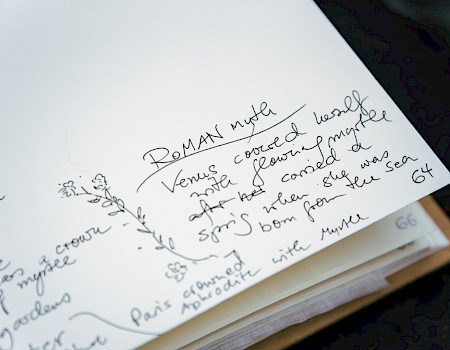 ROMAN myth
Venus covered herself
with flowering myrtle
carried a
sprig when she was
born from the sea
64
Paris crowned
Aphrodite with myrtle
66
as a crown
of myrtle
gardens